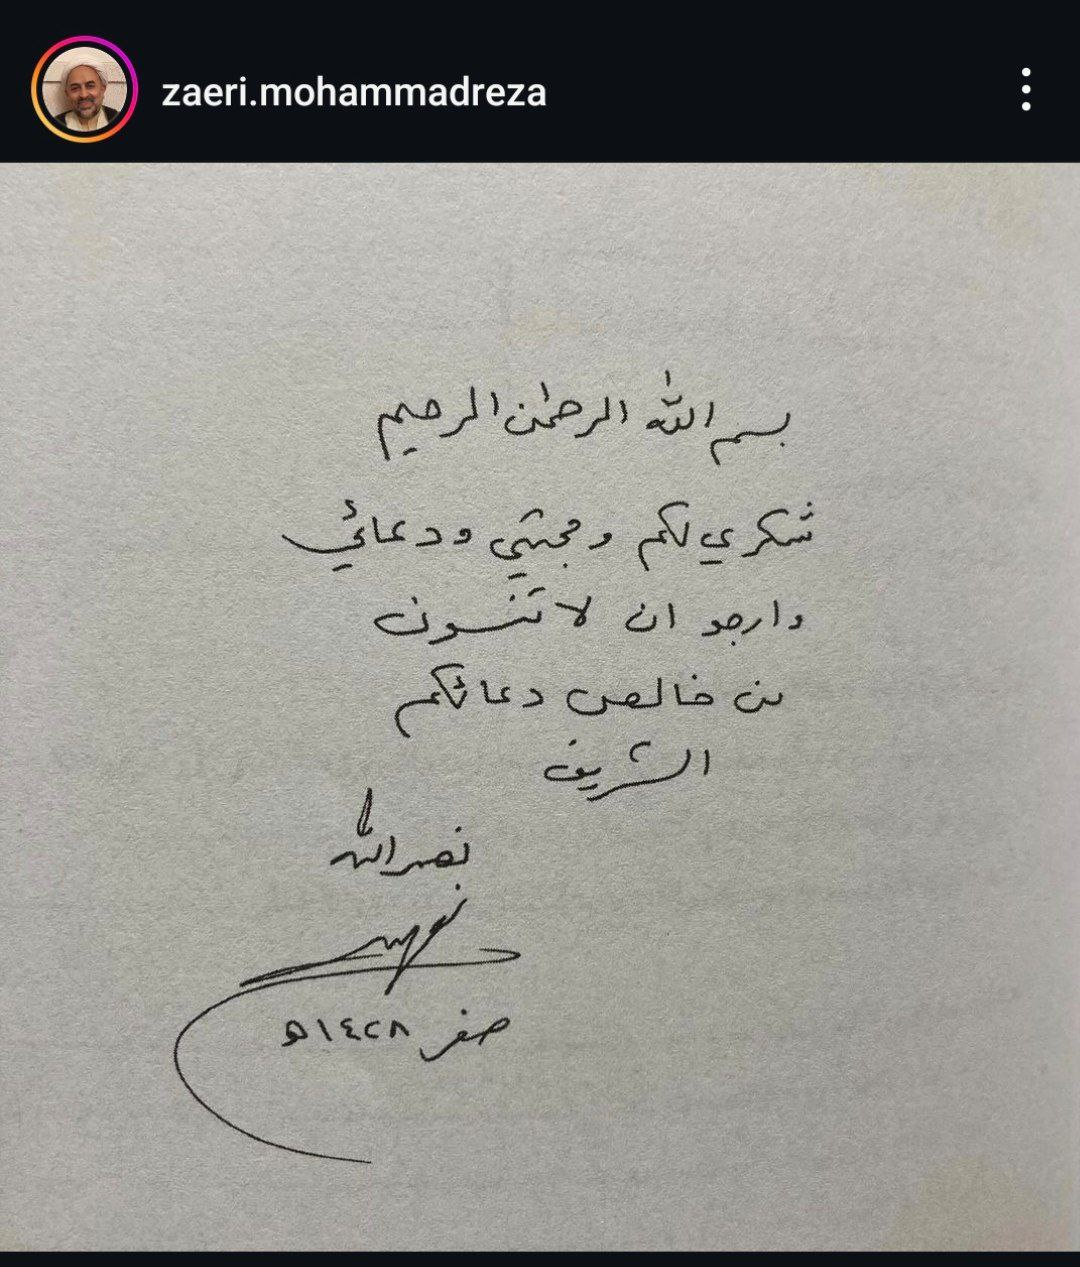 zaeri.mohammadreza
بسم الله الرحمٰن الرحيم
شكري لكم ومحبتي ودعائي
وارجو ان لا تنسون
من خالص دعائكم
الشريف
نصرالله
صفر ١٤٢٨ه